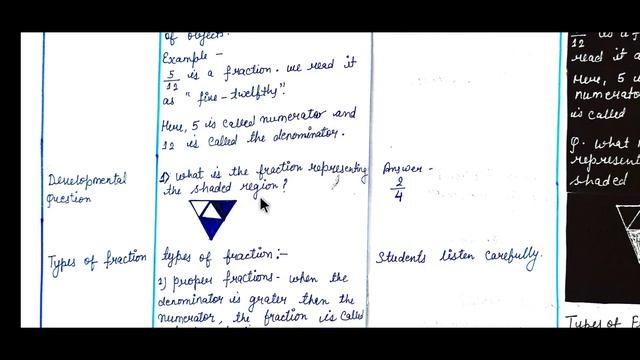 of objects.
Example -
5/12 is a fraction. we read it
as "five-twelfths".
Here, 5 is called numerator and
12 is called the denominator.
Developmental
Question
1) what is the fraction representing
the shaded region?
Answer -
2/4
Types of fraction
types of fraction:-
1) proper fractions - when the
denominator is grater then the
numerator, the fraction is called
Students listen carefully.
12 is a f
read it a
Here, 5
numerato
is called
Q. what i
represent
shaded
Types of F